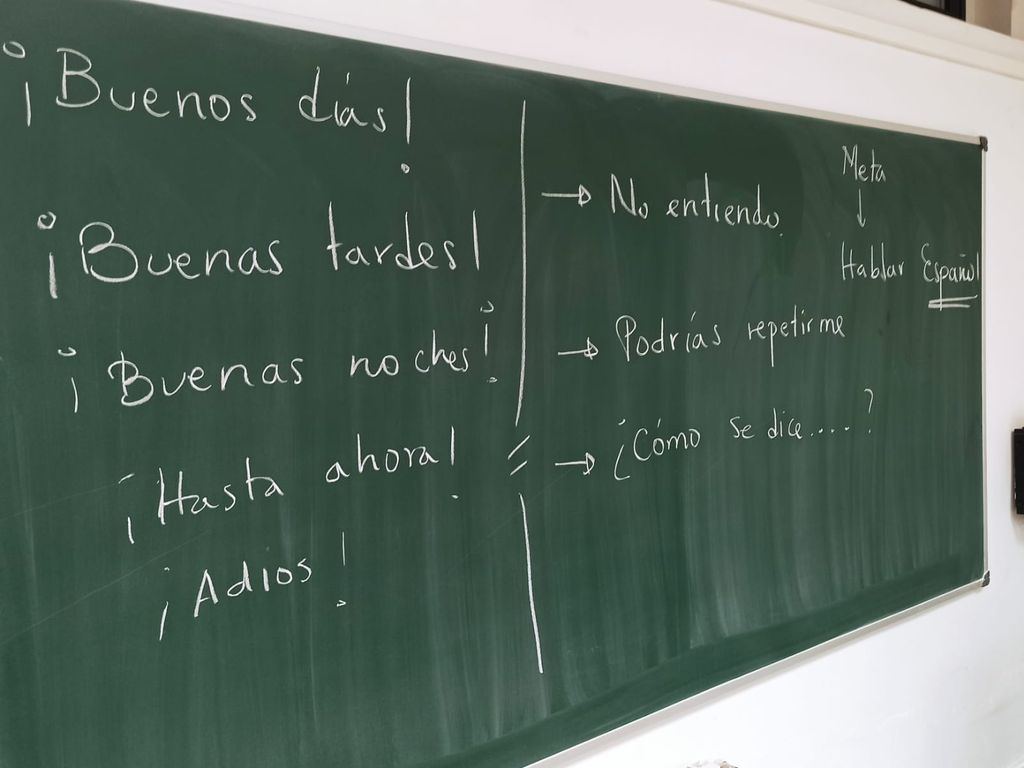 ¡Buenos días!
¡Buenas tardes!
¡Buenas noches!
¡Hasta ahora!
¡Adios!
→ No entiendo.
→ Podrías repetirme
→ ¿Cómo se dice....?
Meta
↓
Hablar Español